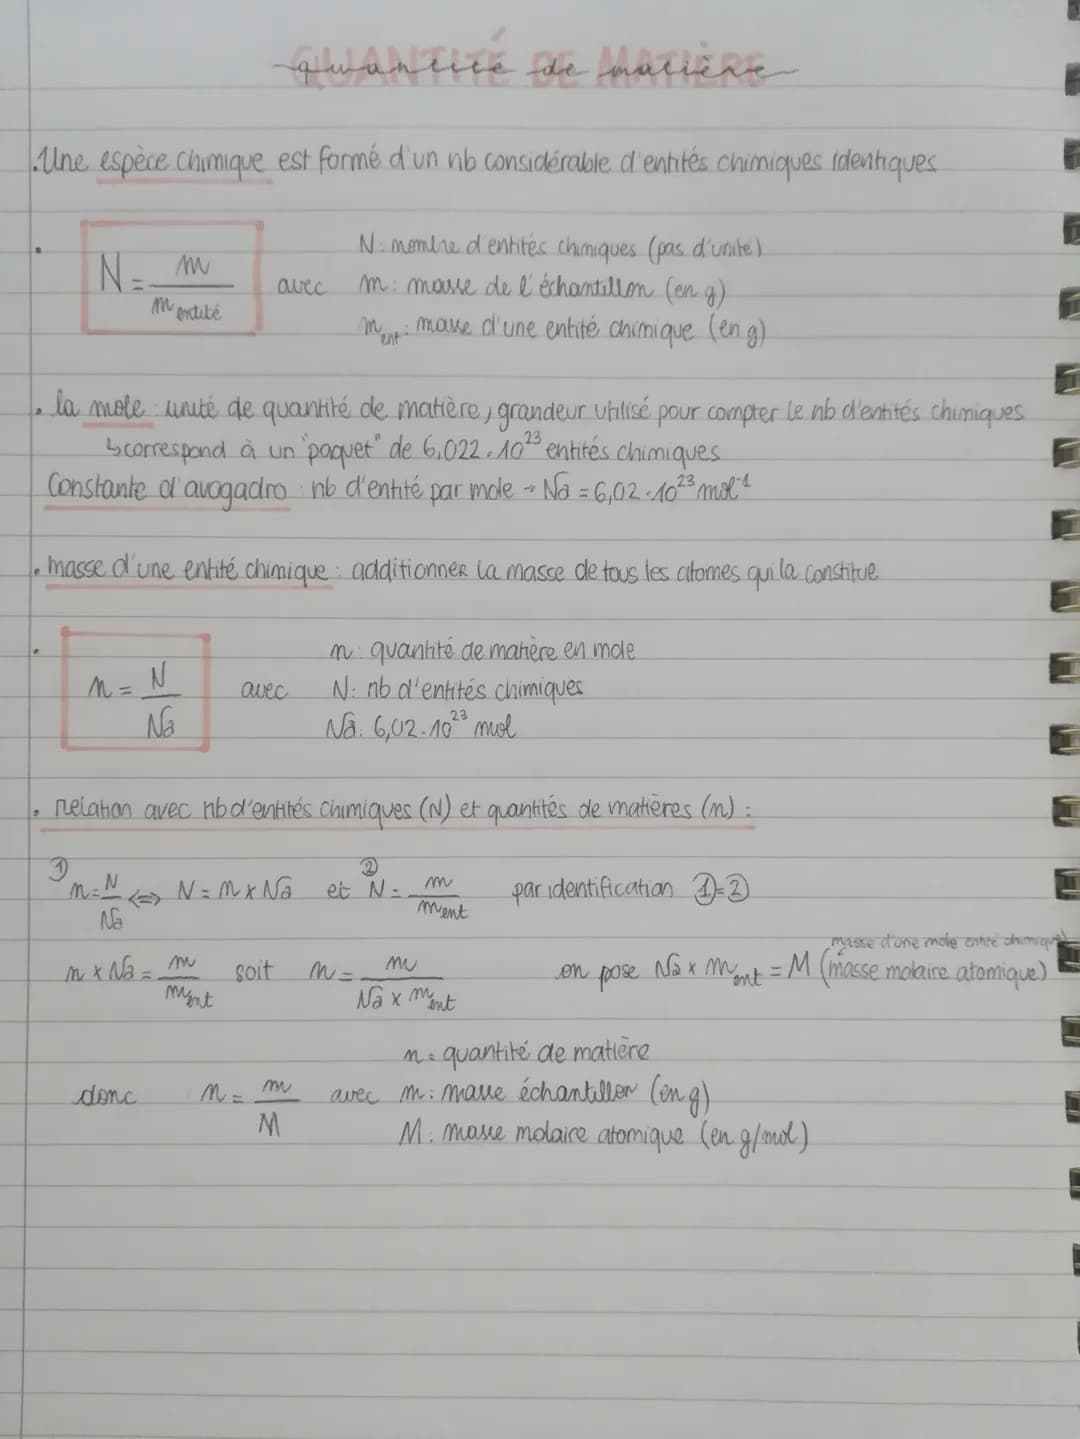 QUANTITÉ DE MATIÈRE
quantité de matière
. Une espèce chimique est formé d'un nb considérable d'entités chimiques identiques
• N = m / m entité avec
N: nombre d'entités chimiques (pas d'unité)
m: masse de l'échantillon (en g)
m ent: masse d'une entité chimique (en g)
• la mole : unité de quantité de matière, grandeur utilisé pour compter le nb d'entités chimiques
↳ correspond à un "paquet" de 6,022 . 10²³ entités chimiques
Constante d'avogadro : nb d'entité par mole → Na = 6,02 . 10²³ mol⁻¹
• masse d'une entité chimique : additionner la masse de tous les atomes qui la constitue
• n = N / Na avec
n: quantité de matière en mole
N: nb d'entités chimiques
Na: 6,02 . 10²³ mol
• relation avec nb d'entités chimiques (N) et quantités de matières (n) :
① n = N / Na ⇔ N = n × Na et ② N = m / m ent par identification ① = ②
masse d'une mole entité chimique
n × Na = m / m ent soit n = m / Na × m ent on pose Na × m ent = M (masse molaire atomique)
n = quantité de matière
donc n = m / M avec m: masse échantillon (en g)
M: masse molaire atomique (en g/mol)